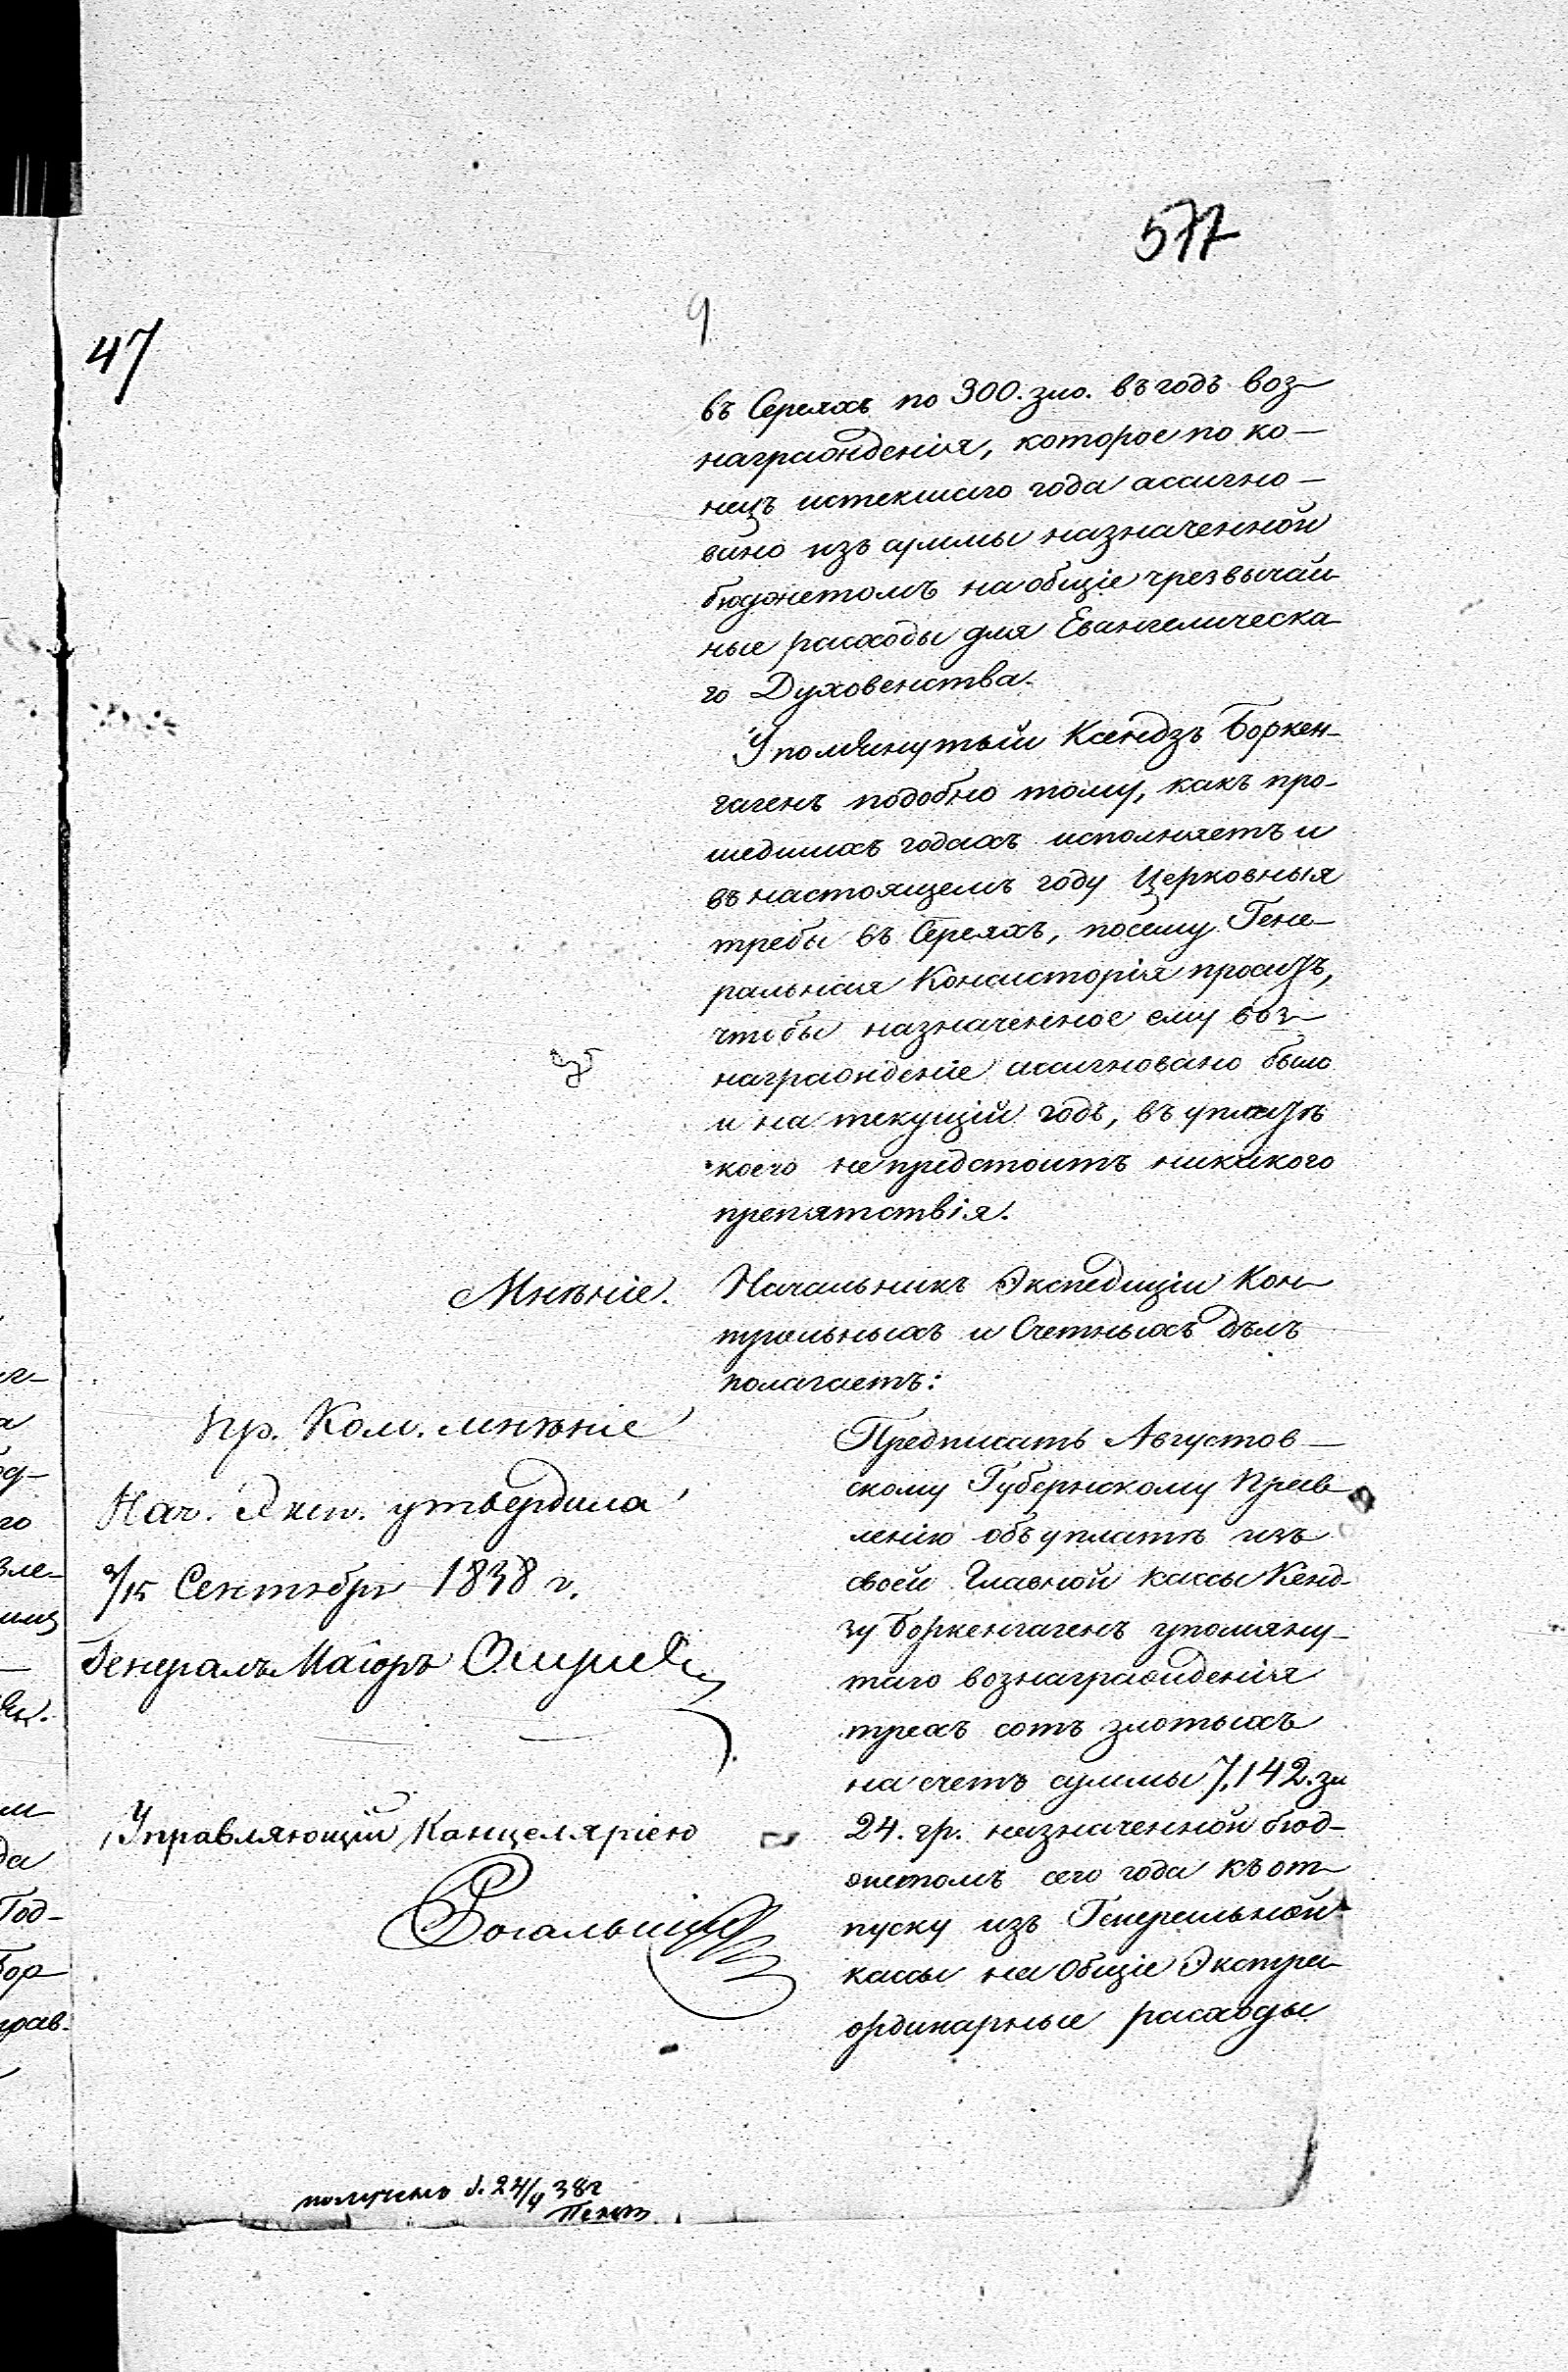 577
9
47
въ Сереяхъ по 300. зло. въ годъ воз-
награжденія, которое по ко-
нецъ истекшаго года ассигно-
вано изъ суммы назначенной
бюджетомъ на общіе чрезвычай-
ные расходы для Евангелическа-
го Духовенства.
Упомянутый Ксендзъ Боркен-
гагенъ подобно тому, какъ про-
шедшихъ годахъ исполняетъ и
въ настоящемъ году Церковныя
требы въ Сереяхъ, посему Гене-
ральная Консисторія проситъ,
чтобы назначенное ему воз-
награжденіе ассигновано было
и на текущій годъ, въ уплатѣ
коего не предстоитъ никакого
препятствія.
Мнѣніе.
Начальникъ Экспедиціи Кон-
трольныхъ и Счетныхъ дѣлъ
полагаетъ:
Предписать Августов-
скому Губернскому Прав-
ленію объ уплатѣ изъ
своей Главной кассы Кенд-
зу Боркенгагенъ упомяну-
таго вознагражденія
трехъ сотъ злотыхъ
на счетъ суммы 7,142. зл
24. гр. назначенной бюд-
жетомъ сего года къ от-
пуску изъ Генеральной
кассы на Общіе Экстра-
ординарные расходы
Пр. Ком. мнѣніе
Нач. Эксп. утвердила
3/15 Сентября 1838 г.
Генералъ Маіоръ
Управляющій Канцеляріею
получено 24/9 38г